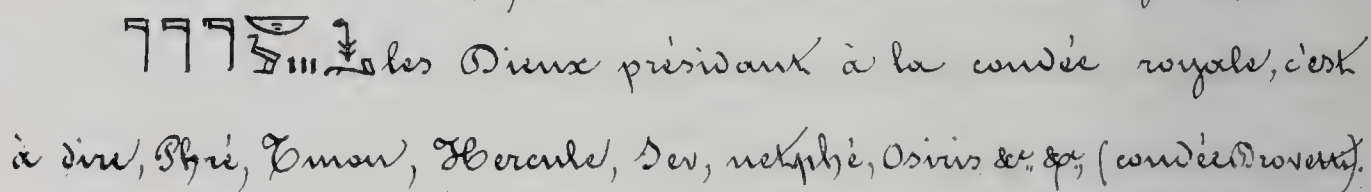 𓊹𓊹𓊹 les Dieux présidant à la coudée royale, c'est
à dire, Phré, Tmou, Hercule, Sev, netphé, Osiris &c. &c. (coudée Drovetti).